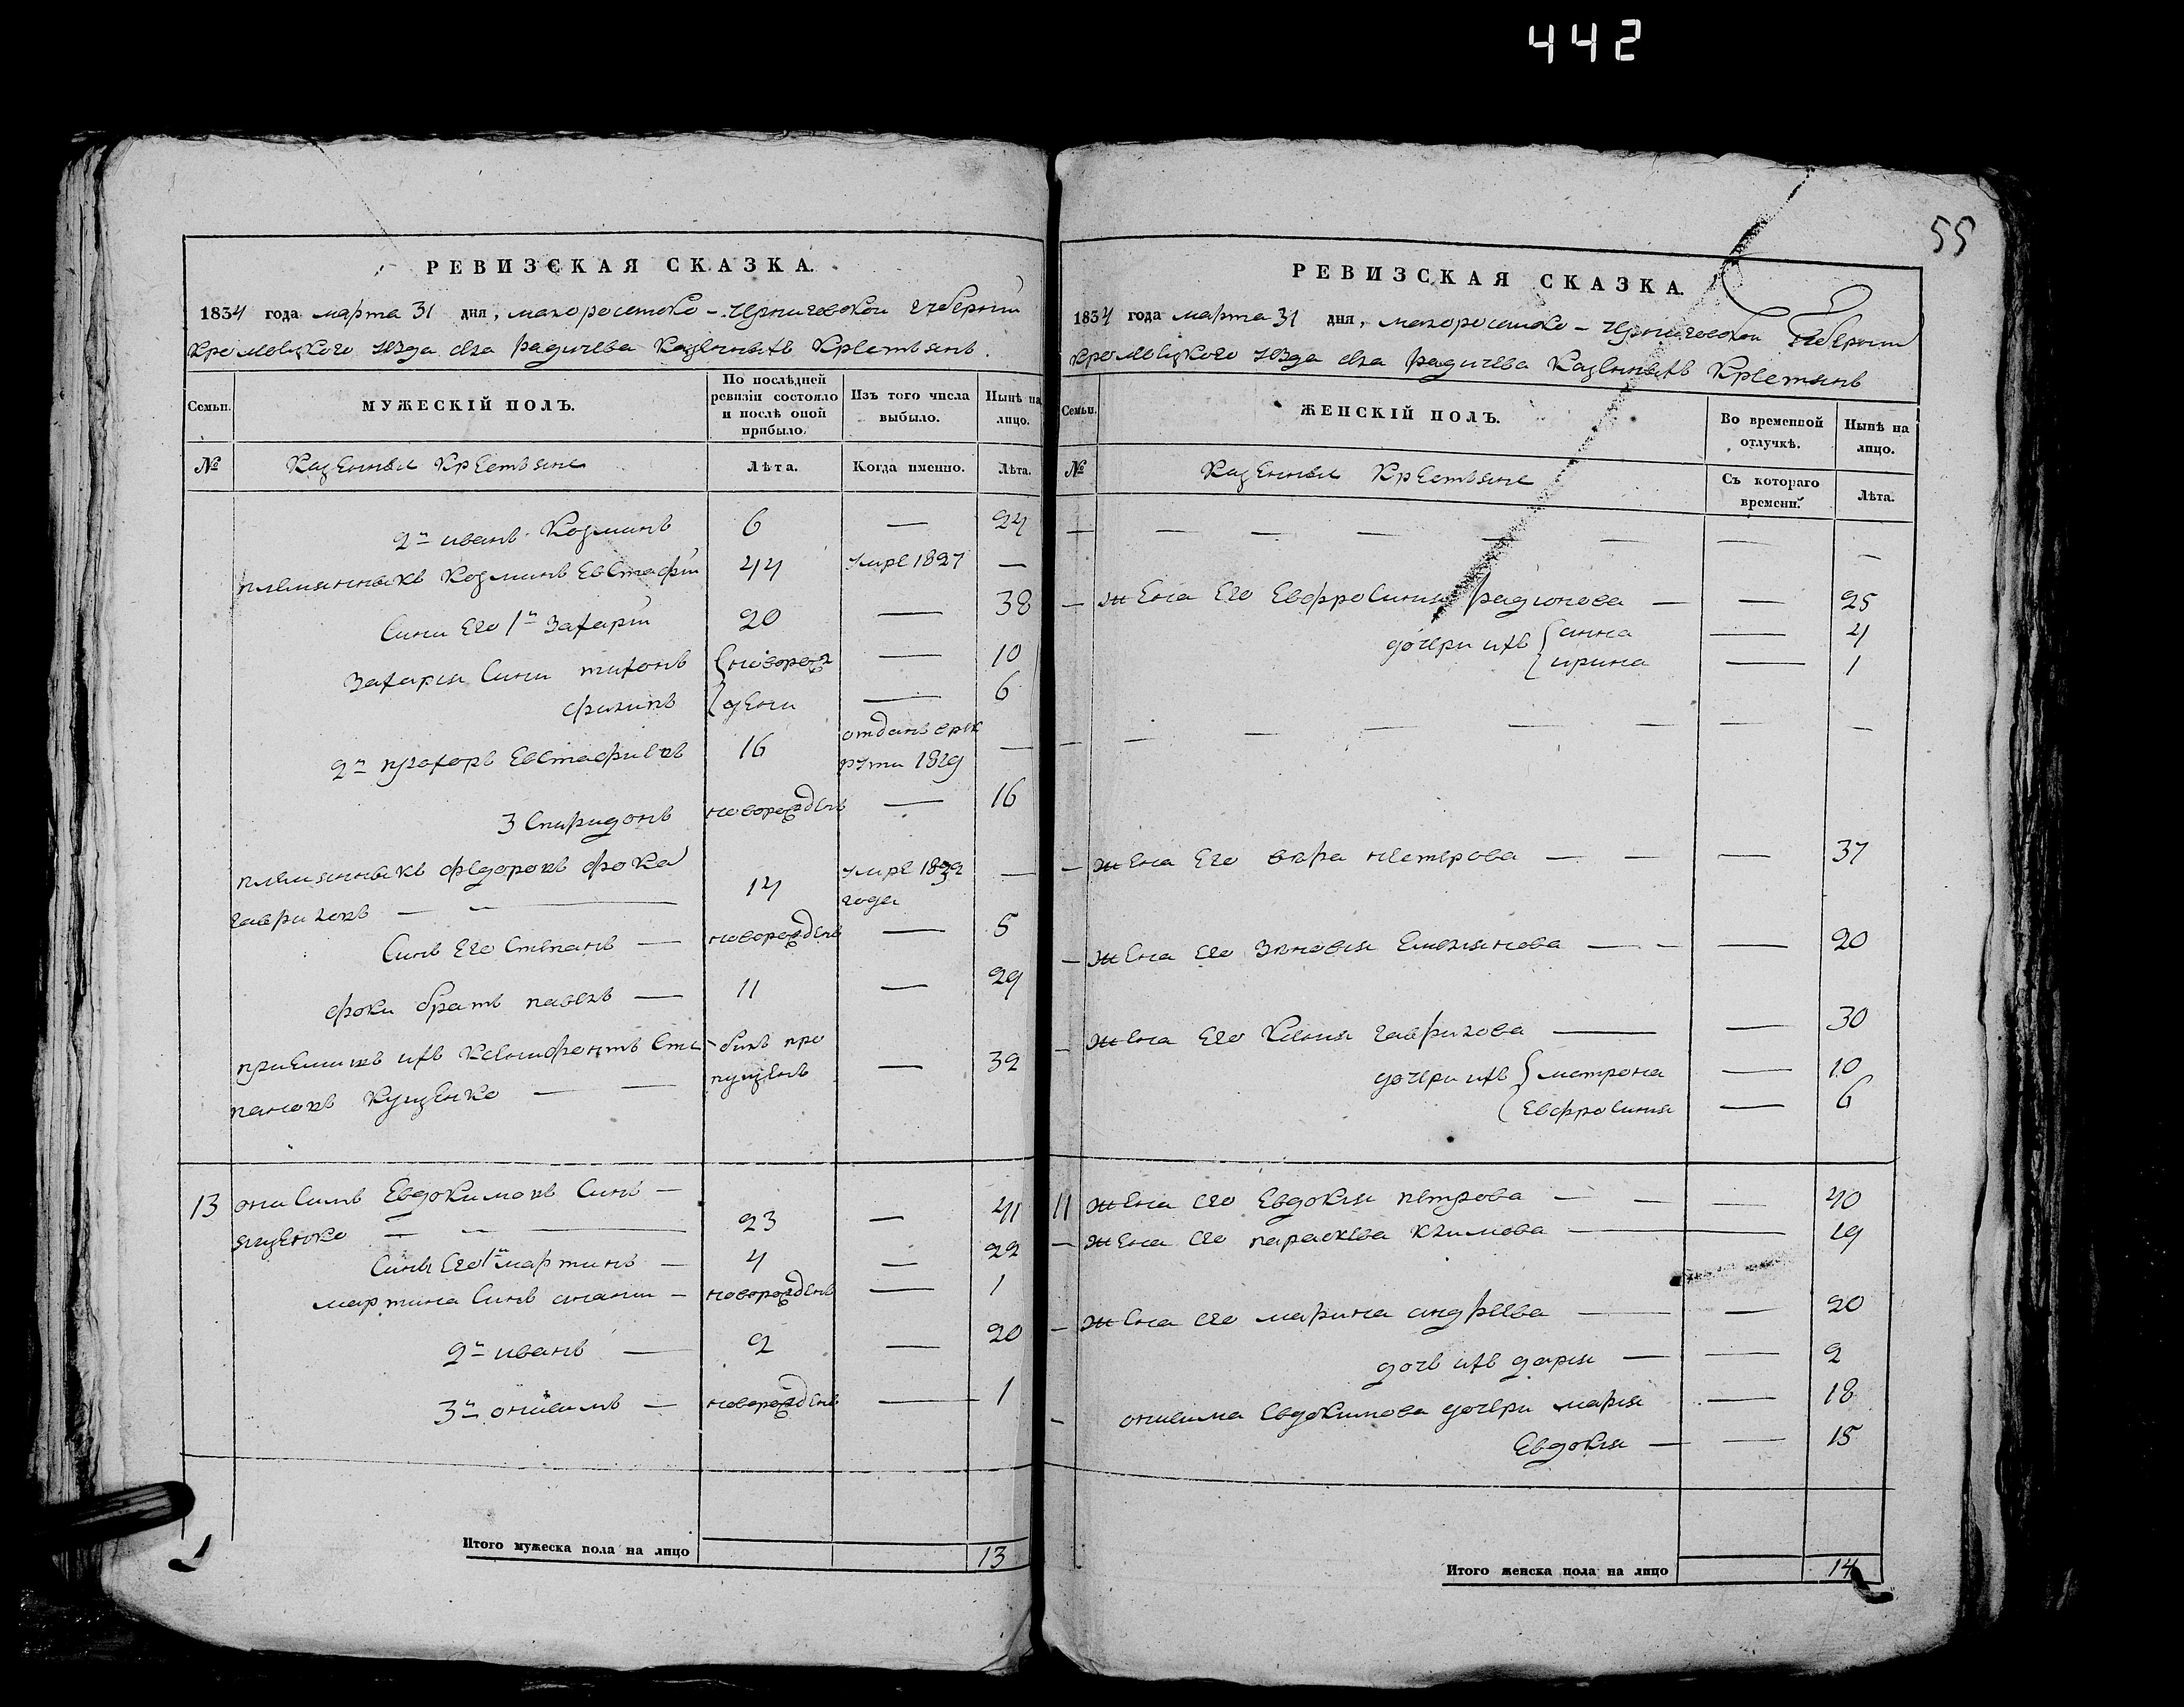 442
55
РЕВИЗСКАЯ СКАЗКА.
1834 года марта 31 дня, малоросииско-черниговской губернии
кролевецкого уезда села радичева казенныхъ крестьянъ.
Семьи.
МУЖЕСКІЙ ПОЛЪ.
По послѣдней ревизіи состояло и послѣ оной прибыло.
Изъ того числа выбыло.
Нынѣ на лицо.
№
Казенныи крестьяне
Лѣта.
Когда именно.
Лѣта.
2й иванъ Козминъ 6 — 24
племянныкъ Козминъ Евстафий 44 умре 1827 —
сини его 1й Захарий 20 — 38
Захария сини тихонъ новорож — 10
филипъ дени — 6
2й прохоръ Евстафиевъ 16 отданъ врек —
руты 1829
3 Спиридонъ новорожденъ — 16
племянныкъ федоровъ фока
гавриловъ — — 14 умре 1832 —
года
Синъ его Степанъ — новорожденъ — 5
фоки братъ павелъ — 11 — 29
приемишъ ихъ Ксенофонтъ Сте— билъ про
пановъ Кущенко — — пущенъ — 32
13 онисимъ Евдокимовъ Синъ —
ященко — — 23 — 41
Синъ его 1й мартинъ — 4 — 22
мартина Синъ анании — новорожденъ — 1
2й иванъ — 2 — 20
3й онисимъ — новорожденъ — 1
Итого мужеска пола на лицо 13
РЕВИЗСКАЯ СКАЗКА.
1834 года марта 31 дня, малоросииско-черниговской губернии
кролевецкого уезда села радичева казенныхъ крестьянъ
Семьи.
ЖЕНСКІЙ ПОЛЪ.
Во временной отлучкѣ.
Нынѣ на лицо.
№
Казенныи Крестьяне
Съ котораго времени.
Лѣта.
— — — — — — — —
— жена Его Евфросиния радионова — — 25
дочери ихъ анна — 4
ирина — 1
— — — — — — —
— жена Его вѣра петрова — — — 37
— жена Его Зѣновия Емелянова — — — 20
— жена Его Ксения гаврилова — — 30
дочери ихъ матрона — 10
Евфросиния — 6
11 жена его Евдокия петрова — — — 40
— жена его параскева климова — 19
— жена его марина андрѣева — — 20
дочь ихъ дария — — 2
— онисима Евдокимова дочери мария — 18
Евдокия — — 15
Итого женска пола на лицо 14